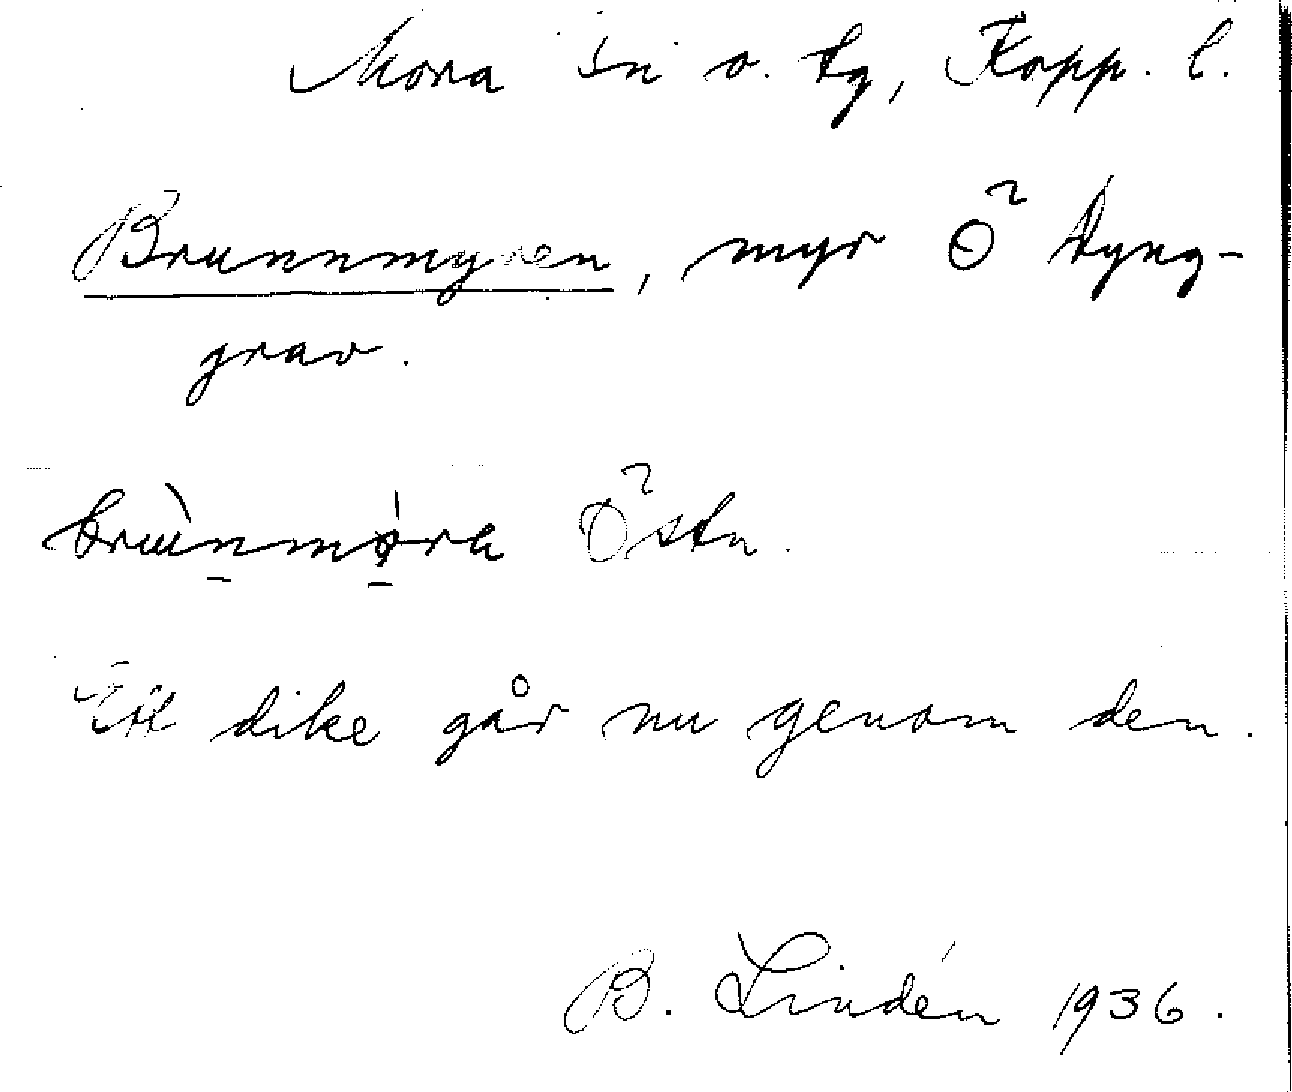 Mora sn o. tg, Kopp. l.
Brunnmyren, myr Ö Dyng-
grav.
Östn.
Ett dike går nu genom den.
B. Lindén 1936.